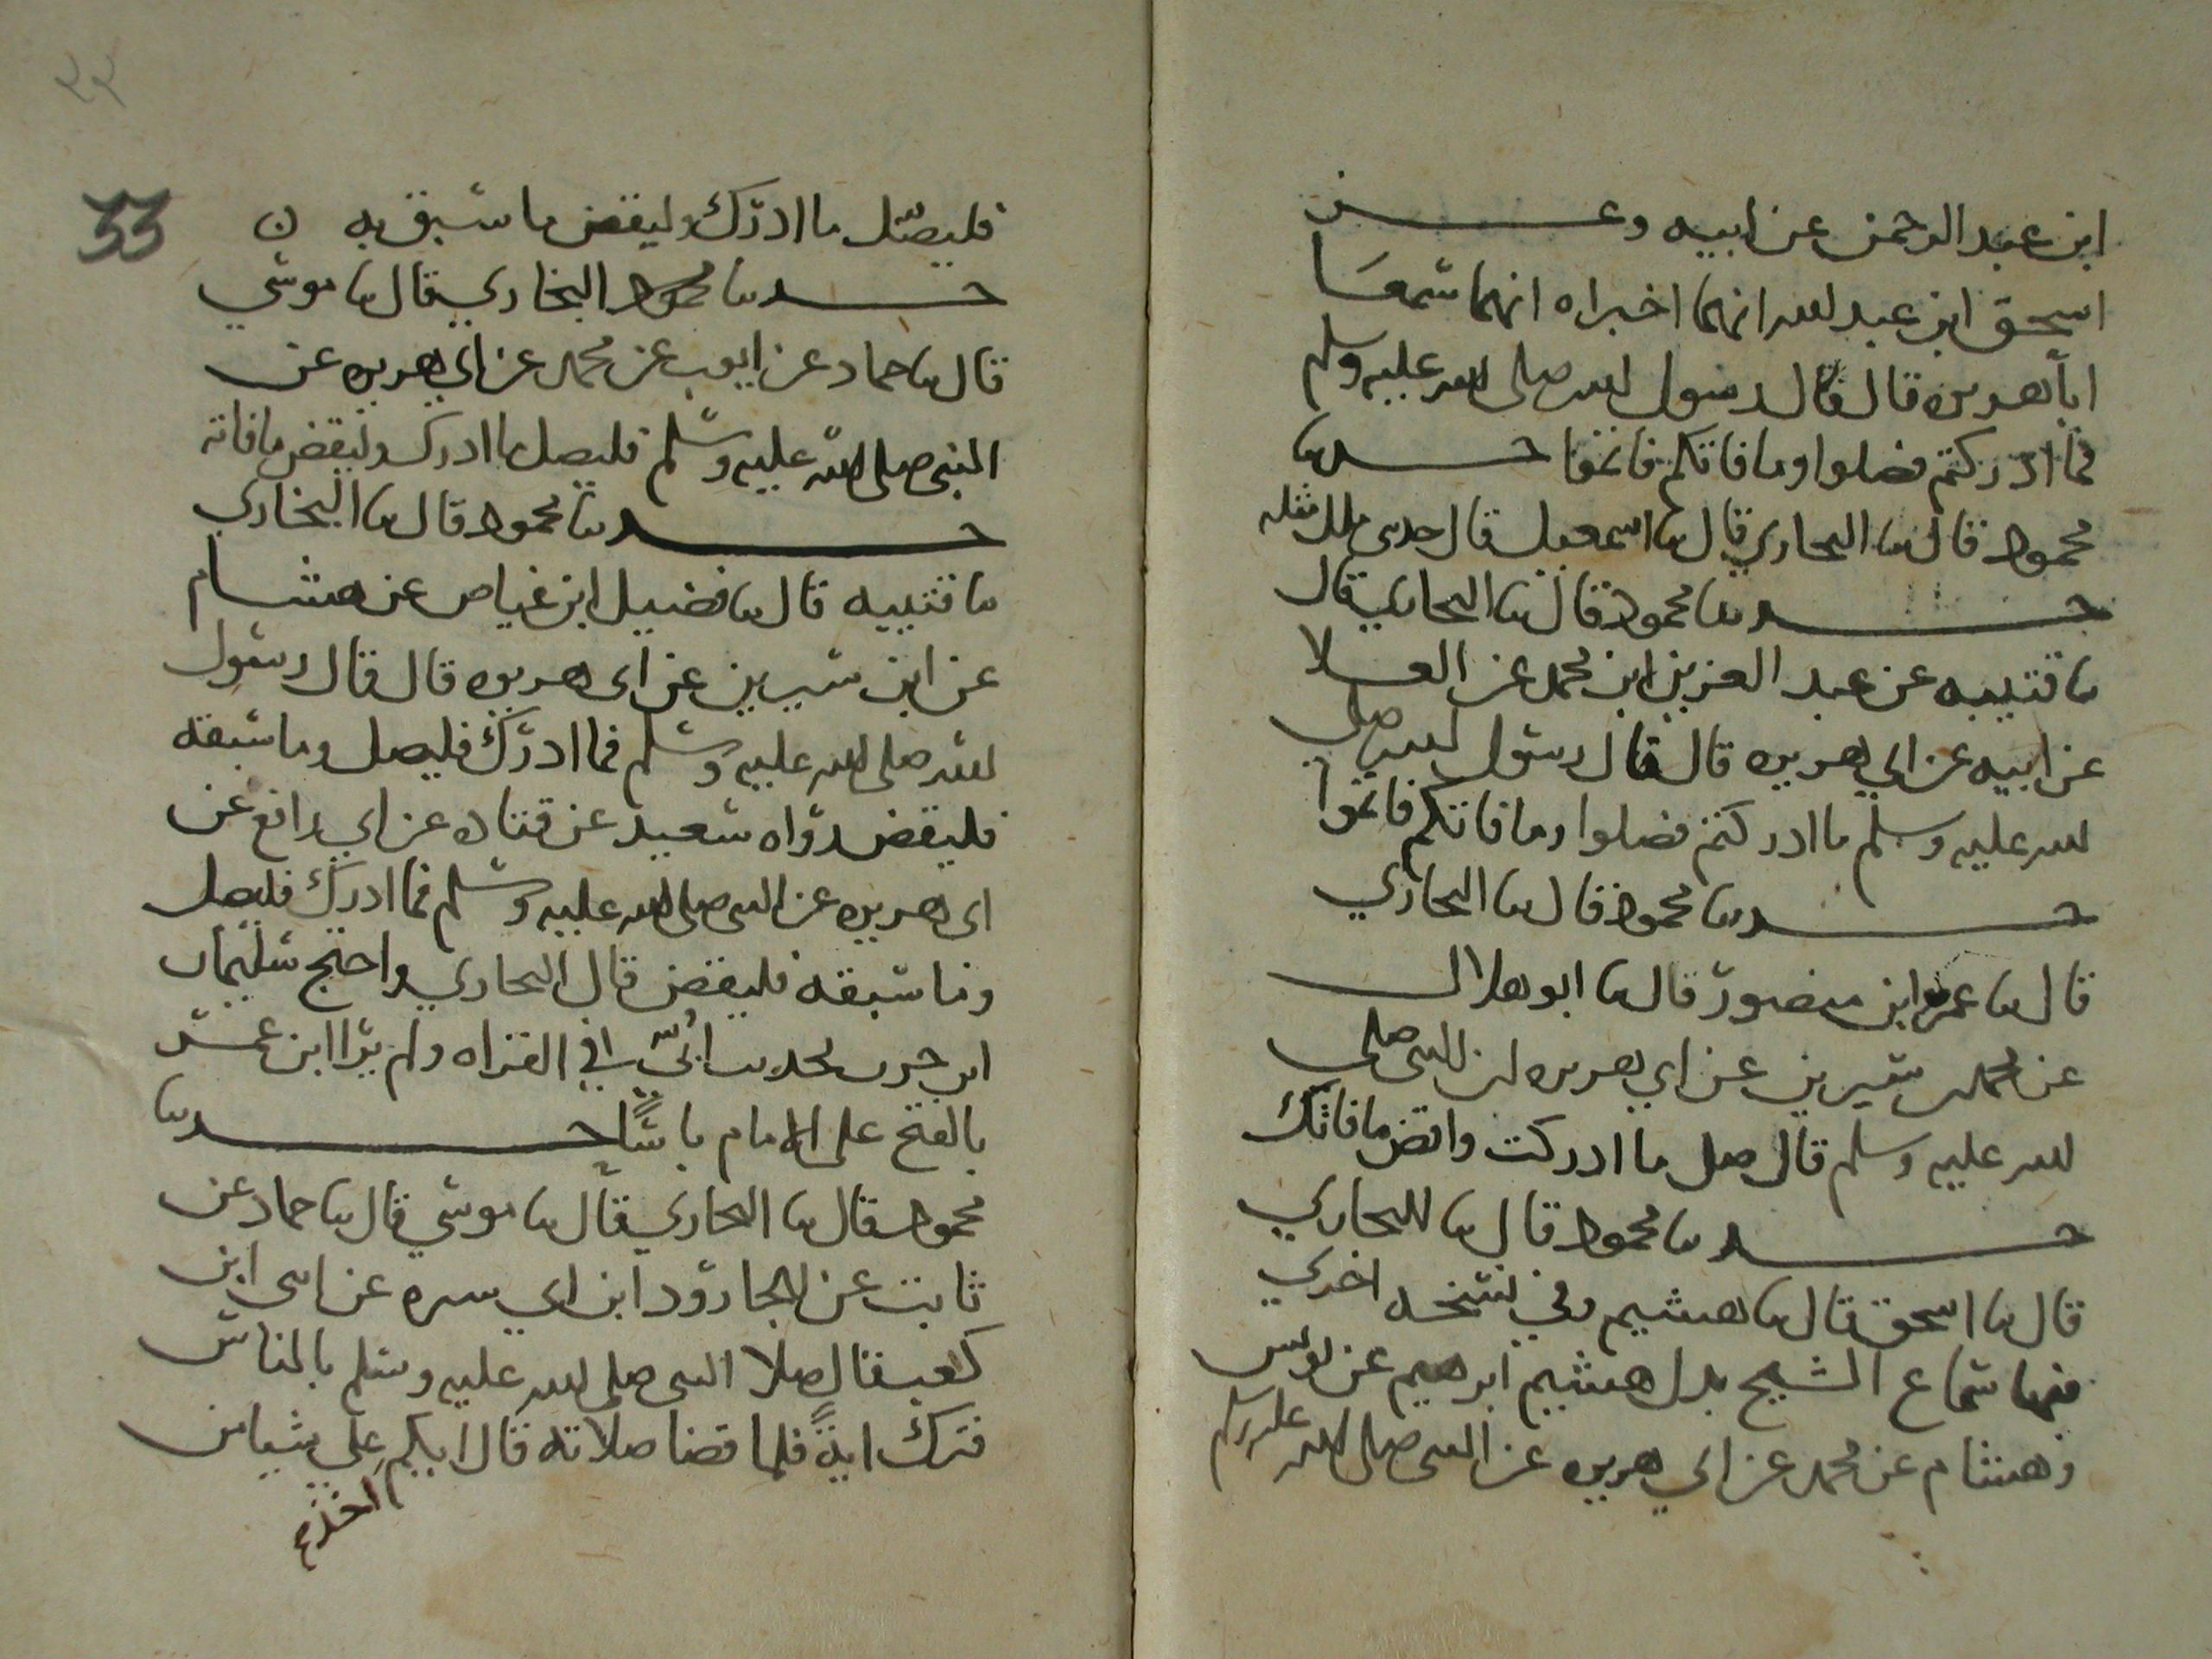 ابن عبد الرحمن عن ابيه وعن
اسحق ابن عبد الله انهما اخبراه انهما سمعا
ابا هريره قال قال رسول الله صلى الله عليه وسلم
فما ادركتم فصلوا وما فاتكم فاتموا حدثنا
محمود قال ثنا البخاري قال ثنا اسمعيل قال حدثني ملك مثله
حدثنا محمود قال ثنا البخاري قال
ثنا قتيبه عن عبد العزيز ابن محمد عن العلا
عن ابيه عن ابي هريره قال قال رسول الله صلى
الله عليه وسلم ما ادركتم فصلوا وما فاتكم فاتموا
حدثنا محمود قال ثنا البخاري
قال ثنا عمرو ابن منصور قال ثنا ابو هلال
عن محمد بن سيرين عن ابي هريره ان النبي صلى
الله عليه وسلم قال صل ما ادركت واقض ما فاتك
حدثنا محمود قال ثنا البخاري
قال ثنا اسحق قال ثنا هشيم وفي نسخه اخري
فيها سماع الشيخ بدل هشيم ابرهيم عن يونس
وهشام عن محمد عن ابي هريره عن النبي صلى الله عليه وسلم
33
فليصل ما ادرك وليقض ما سبق به ن
حدثنا محمود البخاري قال ثنا موسي
قال ثنا حماد عن ايوب عن محمد عن ابي هريره عن
النبي صلى الله عليه وسلم فليصل ما ادرك وليقض ما فاته
حدثنا محمود قال ثنا البخاري
ثنا قتيبه قال ثنا فضيل ابن عياض عن هشام
عن ابن سيرين عن ابي هريره قال قال رسول
الله صلى الله عليه وسلم فما ادرك فليصل وما سبقه
فليقض رواه سعيد عن قتاده عن ابي رافع عن
ابي هريره عن النبي صلى الله عليه وسلم فما ادرك فليصل
وما سبقه فليقض قال البخاري واحتج سليمان
ابن حرب بحديث ابي في القراه ولم ير ابن عمر
بالفتح على الامام باسا حدثنا
محمود قال ثنا البخاري قال ثنا موسي قال ثنا حماد عن
ثابت عن الجارود ابن ابي سبره عن ابي ابن
كعب قال صلا النبي صلى الله عليه وسلم بالناس
فترك اية فلما قضا صلاته قال ايكم علي شيا من